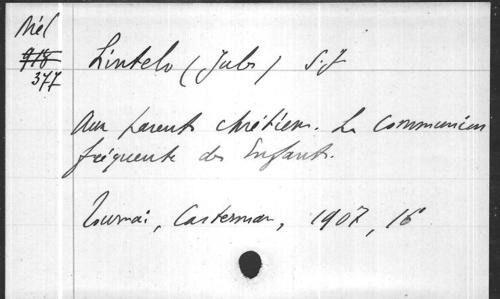 Mél
918
377
Lintelo (Jules) S.J
Aux parents chrétiens. La Communion
fréquente des Enfants.
Tournai, Casterman, 1907, 16°